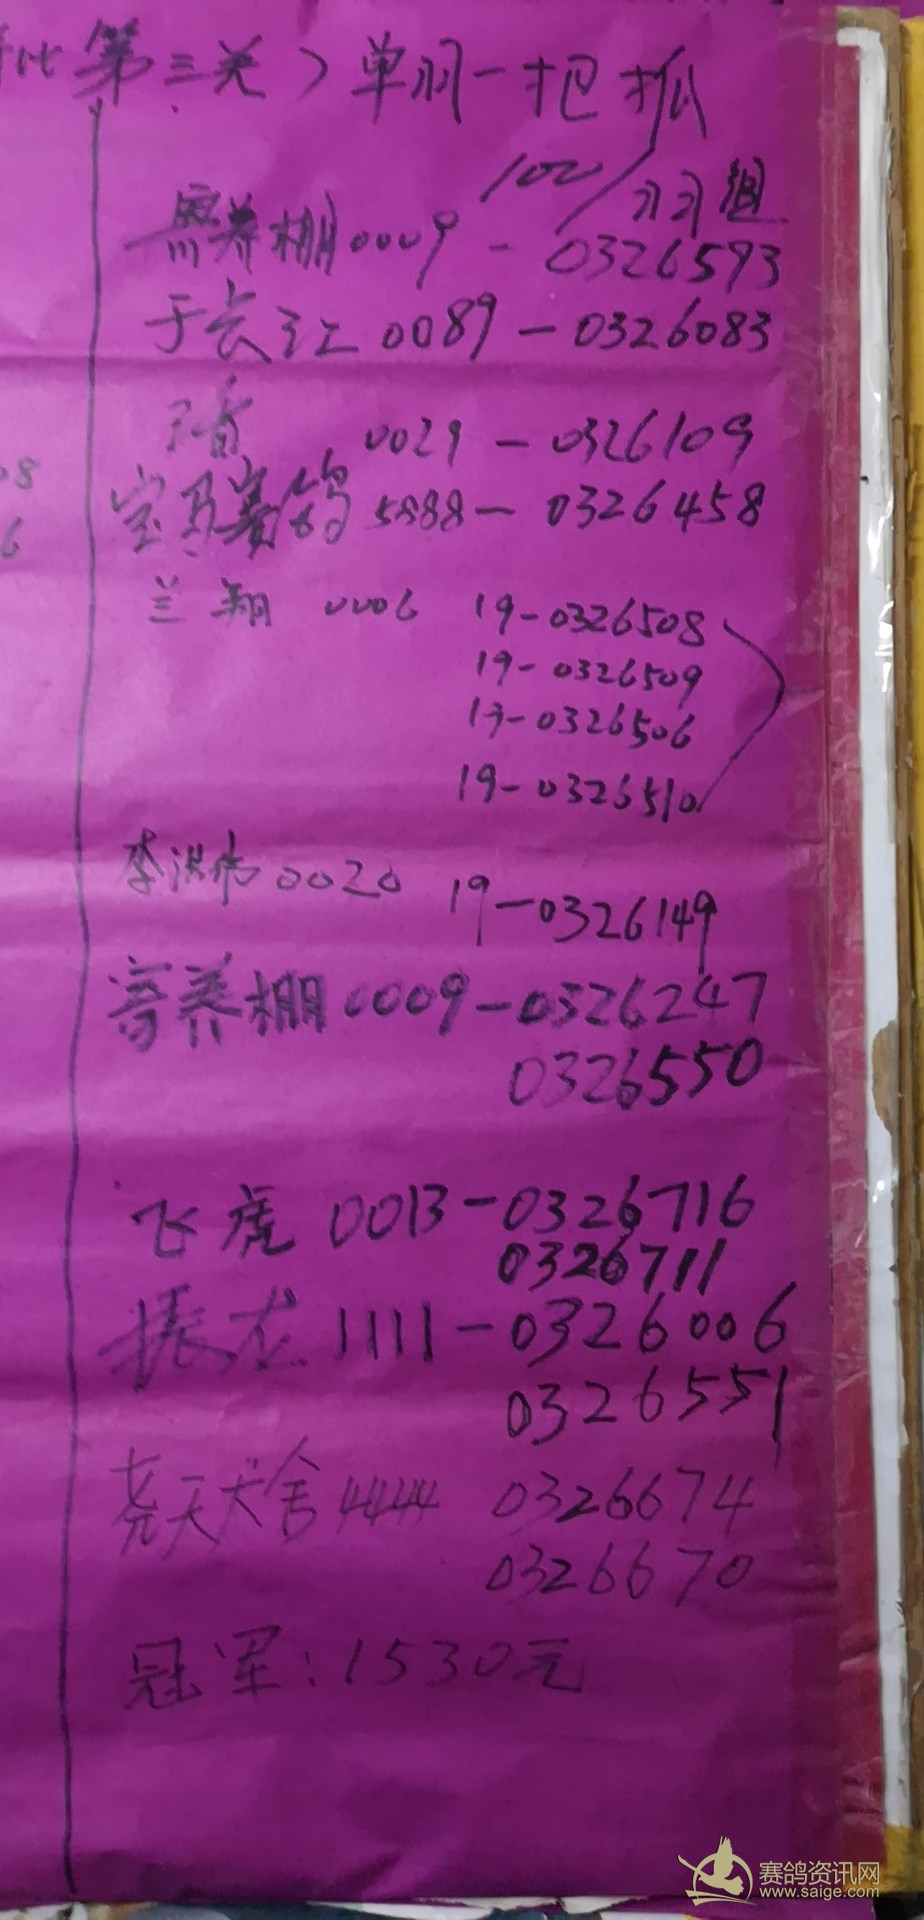 第三关）单羽一把抓
100/羽组
寄养棚0009-0326593
于长江0089-0326083
0029-0326109
宝马赛鸽5888-0326458
08
6
兰翔 0006 19-0326508
19-0326509
19-0326506
19-0326510
李洪伟0020 19-0326149
寄养棚0009-0326247
0326550
飞虎 0013-0326716
0326711
振龙 1111-0326006
0326551
尧天犬舍4444 0326674
0326670
冠军：1530元
赛鸽资讯网
www.saige.com